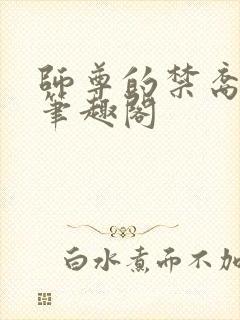 師尊的禁
筆趣閣
白水煮而不加